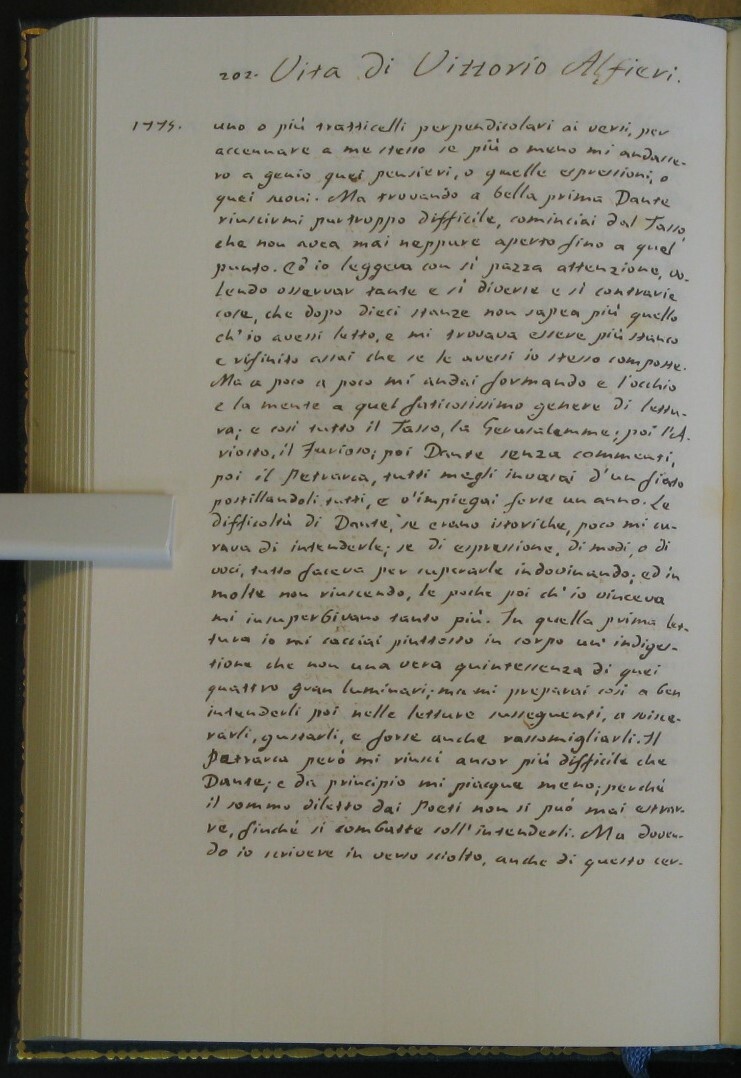 202. Vita di Vittorio Alfieri.
1775.
uno o più tratticelli perpendicolari ai versi, per
accennare a me stesso se più o meno mi andasse-
ro a genio quei pensieri, o quelle espressioni, o
quei suoni. Ma trovando a bella prima Dante
riuscirmi purtroppo difficile, cominciai dal Tasso
che non avea mai neppure aperto fino a quel
punto. Ed io leggeva con sì pazza attenzione, vo-
lendo osservar tante e sì diverse e sì contrarie
cose, che dopo dieci stanze non sapea più quello
ch'io avessi letto, e mi trovava essere più stanco
e rifinito assai che se le avessi io stesso composte.
Ma a poco a poco mi andai formando e l'occhio
e la mente a quel faticosissimo genere di lettu-
ra; e così tutto il Tasso, la Gerusalemme; poi l'A-
riosto, il Furioso; poi Dante senza commenti,
poi il Petrarca, tutti me gli invasai d'un fiato
postillandoli tutti, e v'impiegai forse un anno. Le
difficoltà di Dante, se erano istoriche, poco mi cu-
rava di intenderle; se di espressione, di modi, o di
voci, tutto faceva per superarle indovinando; ed in
molte non riuscendo, le poche poi ch'io vinceva
mi insuperbivano tanto più. In quella prima let-
tura io mi cacciai piuttosto in corpo un'indiges-
tione che non una vera quintessenza di quei
quattro gran luminari; ma mi preparai così a ben
intenderli poi nelle letture susseguenti, a svisce-
rarli, gustarli, e forse anche rassomigliarli. Il
Petrarca però mi riuscì ancor più difficile che
Dante; e da principio mi piacque meno; perché
il sommo diletto dai Poeti non si può mai estrar-
re, finché si combatte coll'intenderli. Ma doven-
do io scrivere in verso sciolto, anche di questo cer-